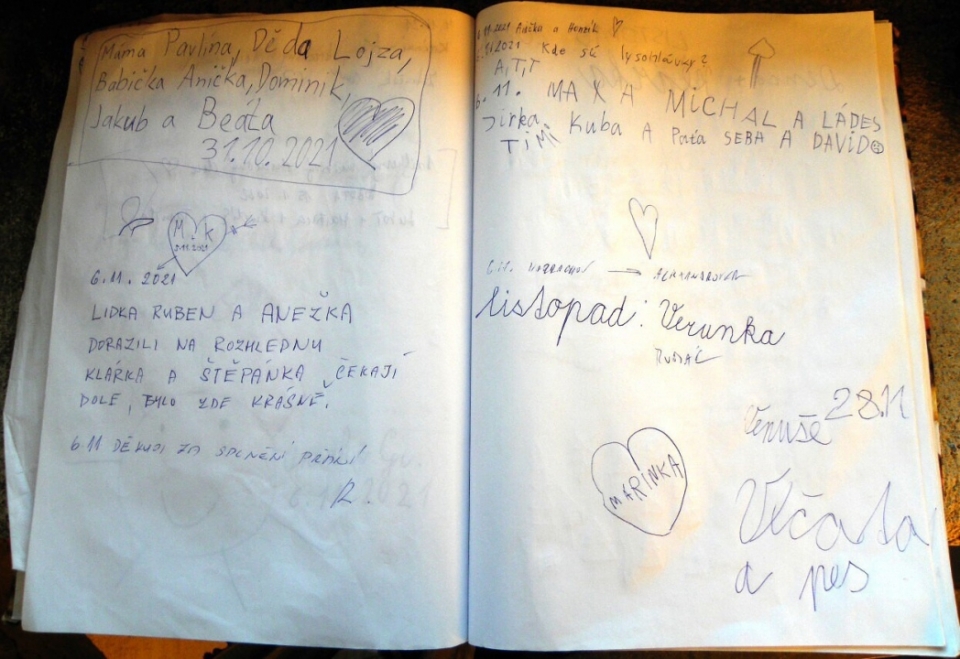 Máma Pavlína, Děda Lojza,
Babička Anička, Dominik,
Jakub a Beáta
31.10.2021
M K
6.11.2021
LIDKA RUBEN A ANEŽKA
DORAZILI NA ROZHLEDNU
KLÁRKA A ŠTĚPÁNKA ČEKAJÍ
DOLE, BYLO ZDE KRÁSNĚ.
6.11 DĚKUJI ZA SPLNĚNÍ PŘÁNÍ!
2021 Anička a Honzík
2021 Kdo sú
A,T,T
6.11. MAX A MICHAL A LÁDES
Jirka, Kuba A Paťa SEBA A DAVID
TiMi
listopad: Verunka
Venuše 28.11
MARINKA
Vlčata
a pes